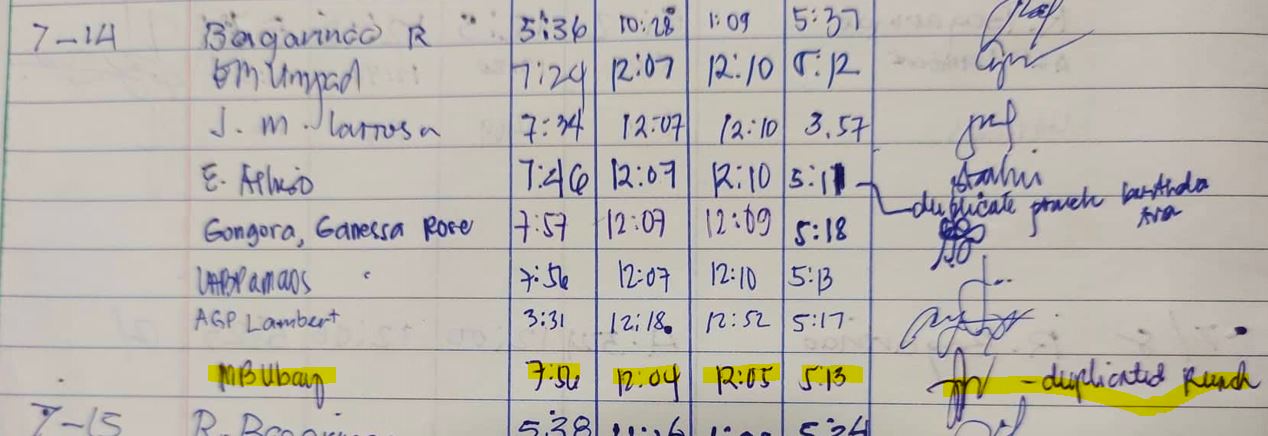 7-14 Bagarinao R 5:36 10:28 1:09 5:37
7:24 12:07 12:10 5:12
J. M. Larrosa 7:34 12:07 12:10 3.57
E. 7:46 12:07 12:10 5:11
duplicate punch
Gongora, Ganessa Rose 7:57 12:07 12:09 5:18
7:56 12:07 12:10 5:13
AGP Lambert 3:31 12:18 12:52 5:17
MBUbay 7:56 12:04 12:05 5:13 - duplicated Punch
7-15 R. 5:38 5:24